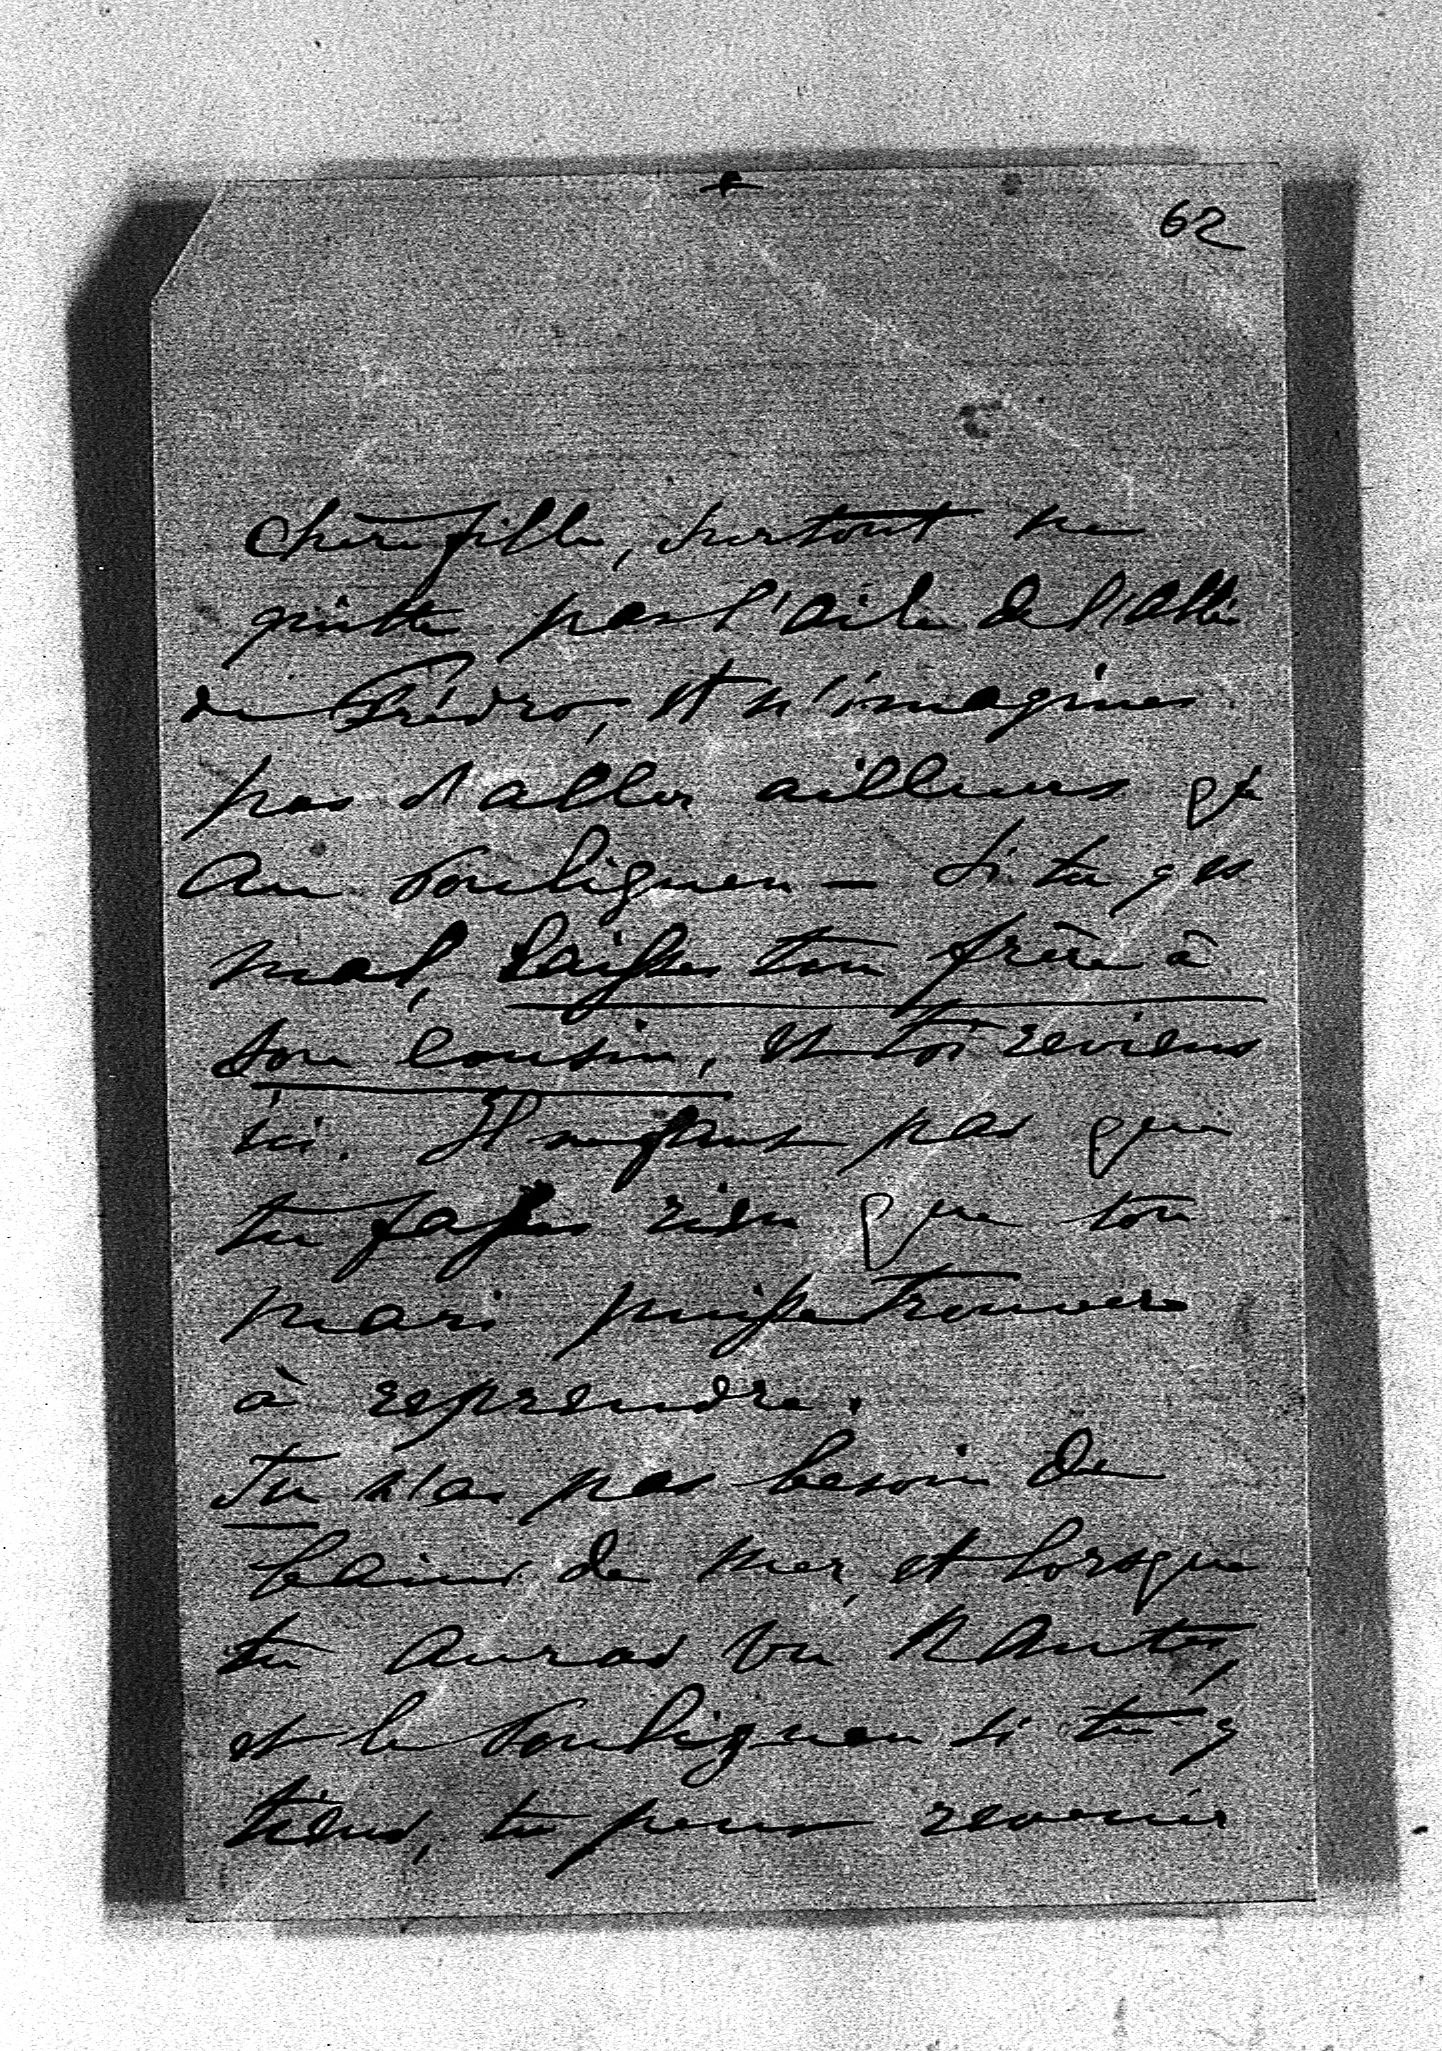 62
Chère fille, surtout ne
quitte pas l'aile de l'abbé
de Frédro, et n'imagines
pas d'aller ailleurs qu
au Pouliguen — Si tu y es
mal, laisses ton frère à
son cousin, et toi reviens
ici. Il ne faut pas que
tu fasses rien que ton
mari puisse trouver
à reprendre.
Tu n'as pas besoin de
bains de mer, et lorsque
tu auras vu Nantes,
et le Pouliguen si tu y
tiens, tu peux revenir